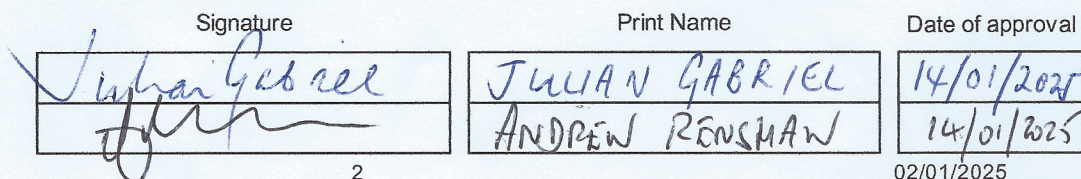 Signature Print Name Date of approval
Julian Gabriel JULIAN GABRIEL 14/01/2025
ANDREW RENSHAW 14/01/2025
2 02/01/2025